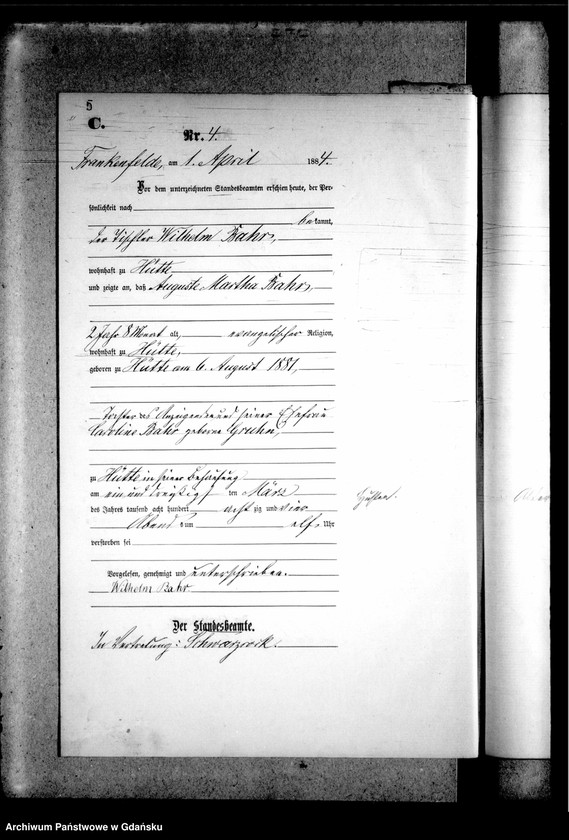 5
C.
Nr. 4.
Frankenfelde, am 1. April 1884.
Vor dem unterzeichneten Standesbeamten erschien heute, der Per-
sönlichkeit nach
bekannt,
der Tischler Wilhelm Bahr,
wohnhaft zu Hütte
und zeigte an, daß Auguste Martha Bahr,
2 Jahr 8 Monat alt, evangelischer Religion,
wohnhaft zu Hütte,
geboren zu Hütte am 6. August 1881,
Tochter des Anzeigenden und seiner Ehefrau
Caroline Bahr geborne Gruehn,
zu Hütte in seiner Behausung
am ein und dreißig ten März
des Jahres tausend acht hundert acht zig und vier
Abends um elf Uhr
verstorben sei
Vorgelesen, genehmigt und unterschrieben.
Wilhelm Bahr
Der Standesbeamte.
In Vertretung: Schwarzrock.
Archiwum Państwowe w Gdańsku